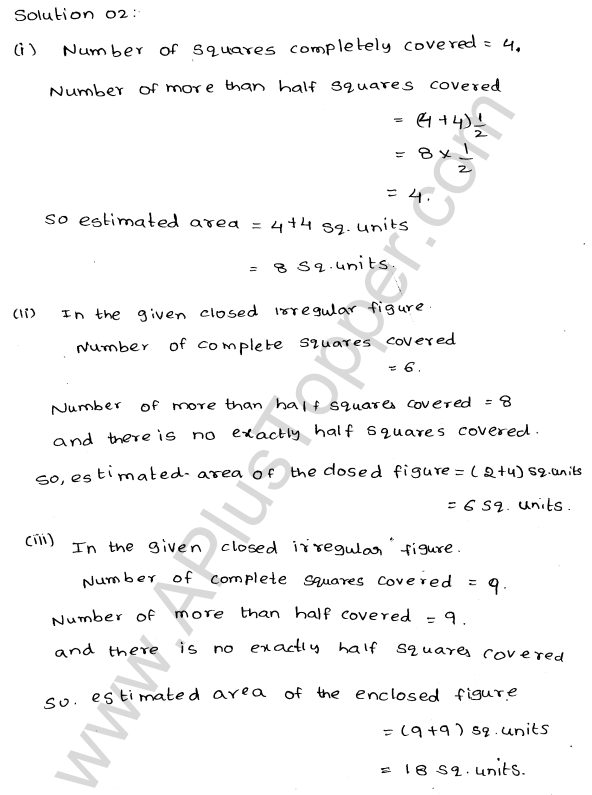 Solution 02:
(i) Number of squares completely covered = 4.
Number of more than half squares covered
= (4+4)1/2
= 8 × 1/2
= 4.
So estimated area = 4+4 sq. units
= 8 sq. units.
(ii) In the given closed irregular figure.
Number of complete squares covered
= 6.
Number of more than half squares covered = 8
and there is no exactly half squares covered.
So, estimated area of the closed figure = (2+4) sq. units
= 6 sq. units.
(iii) In the given closed irregular figure.
Number of complete squares covered = 9.
Number of more than half covered = 9.
and there is no exactly half squares covered
So. estimated area of the enclosed figure
= (9+9) sq. units
= 18 sq. units.
www.APlusTopper.com